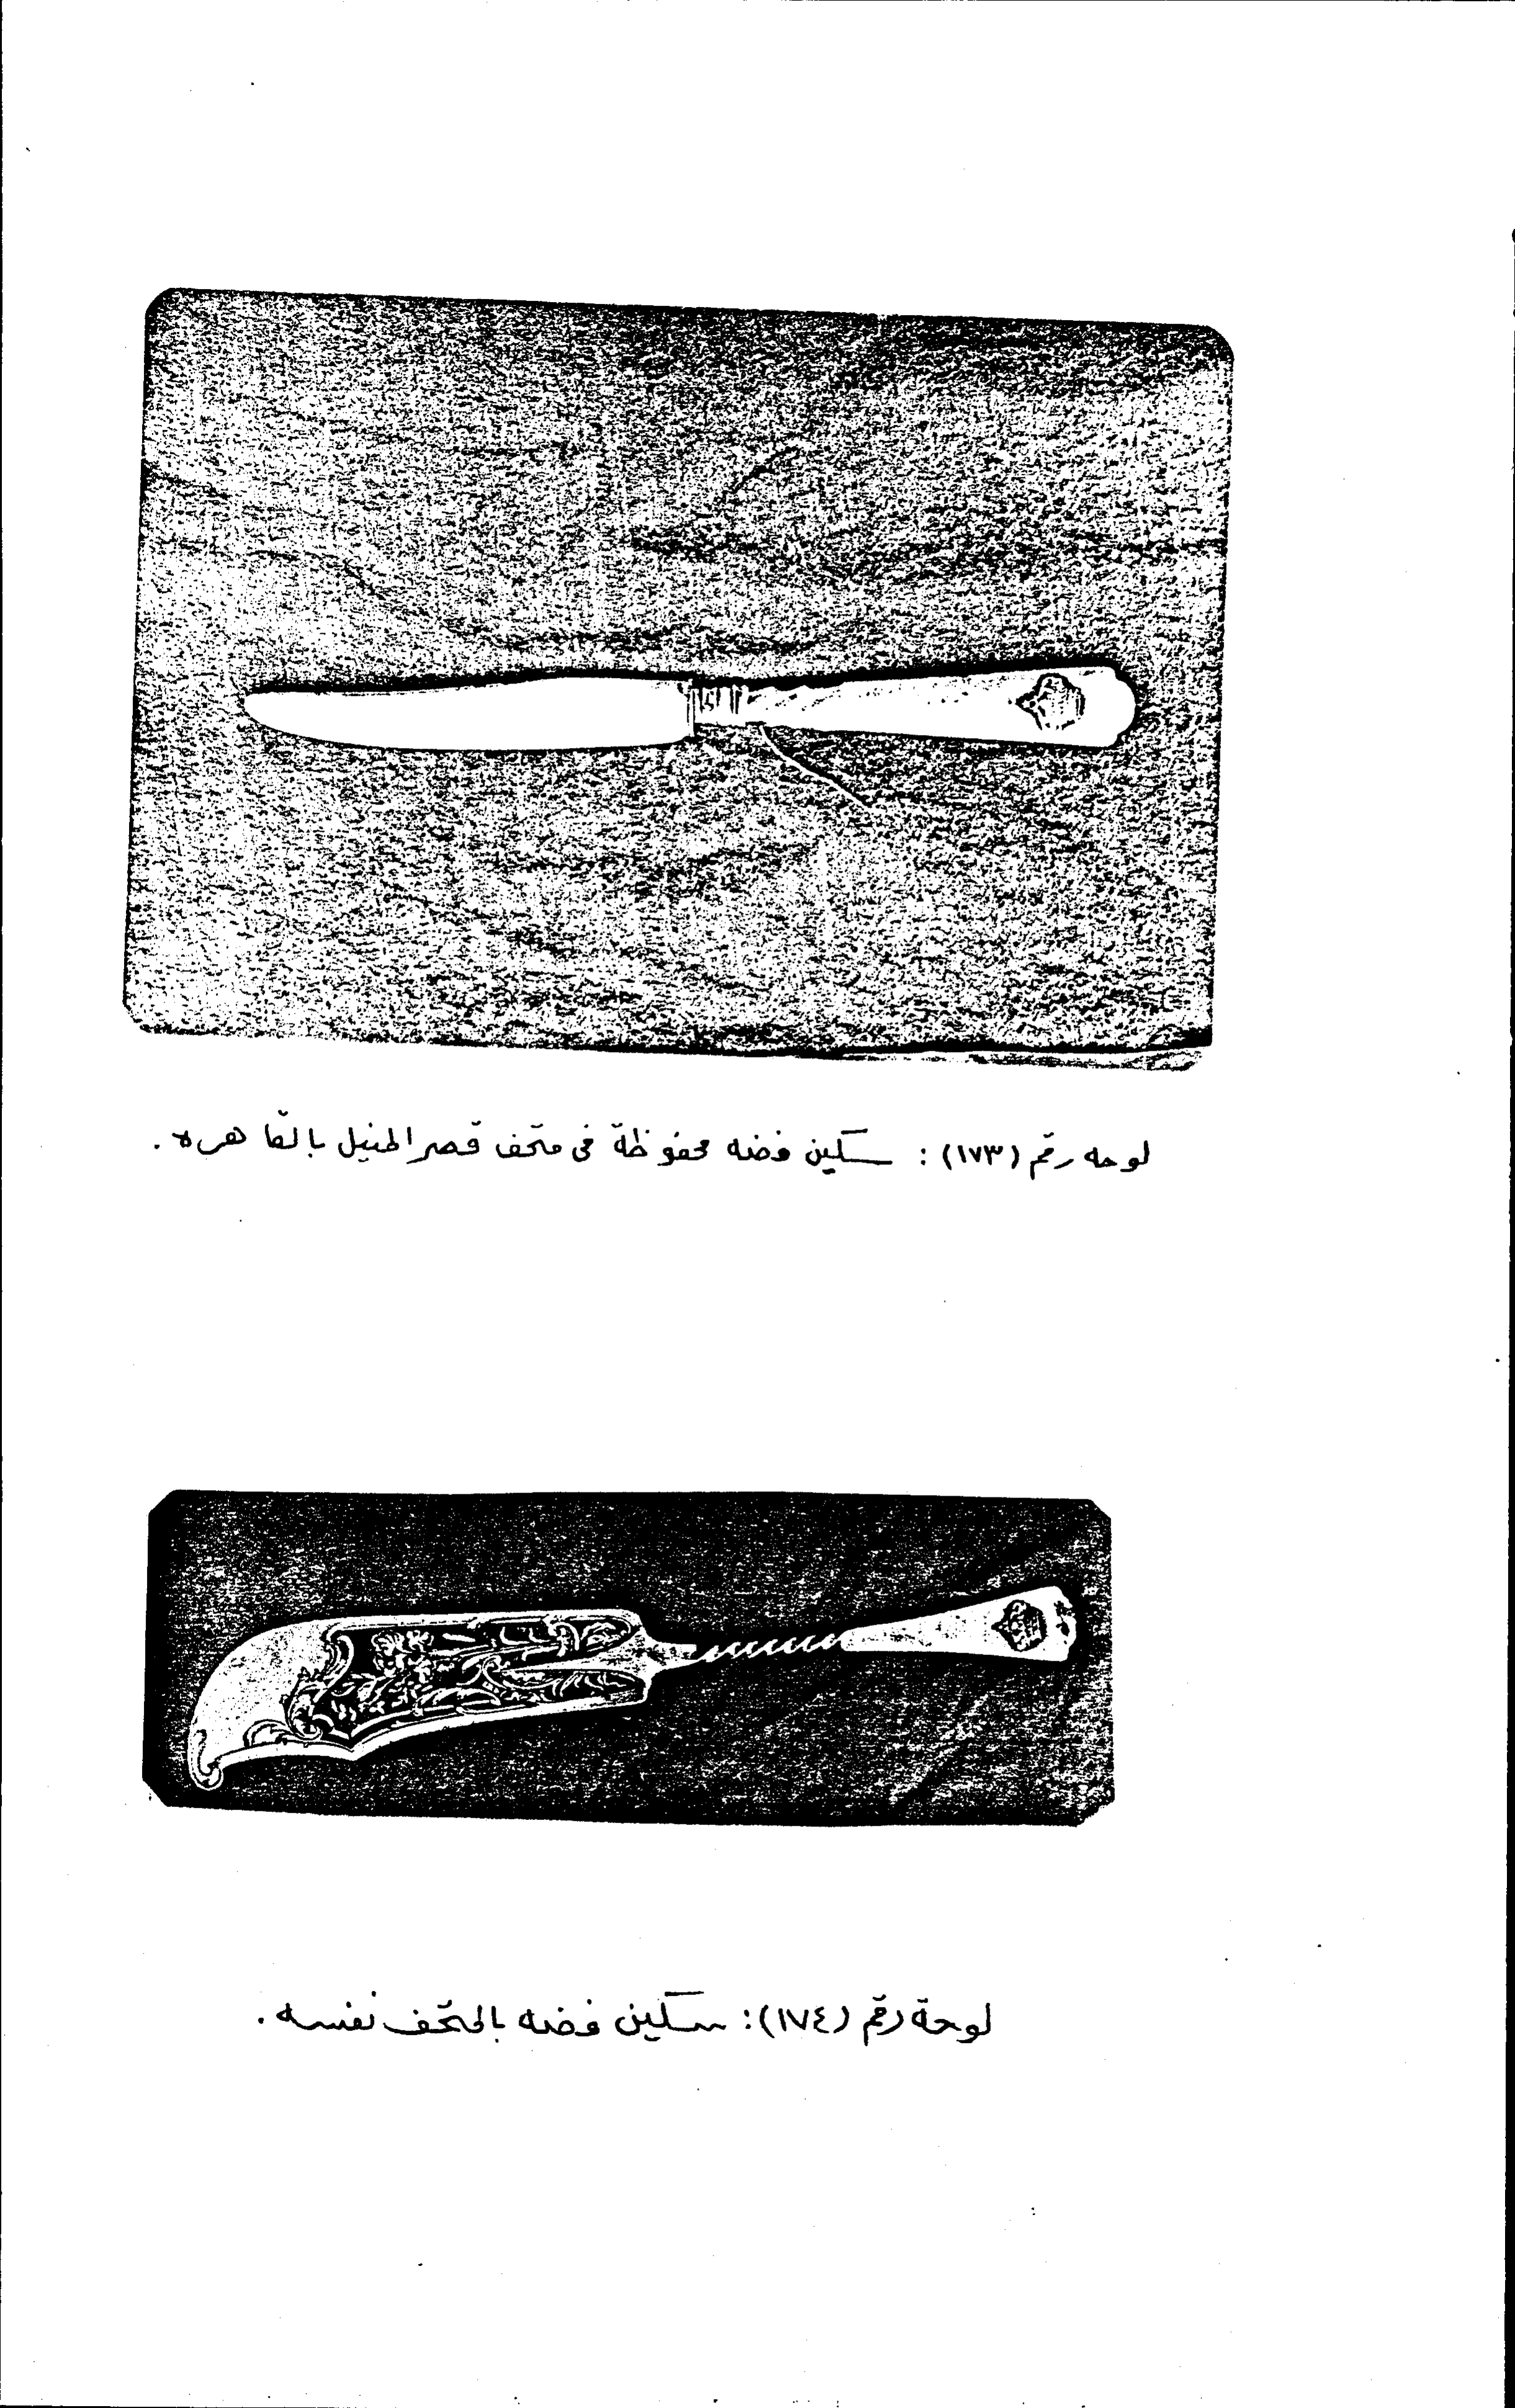 لوحه رقم (١٧٣) : سكين فضه محفوظة فى متحف قصر المنيل بالقاهره .
لوحة رقم (١٧٤) : سكين فضه بالمتحف نفسه .